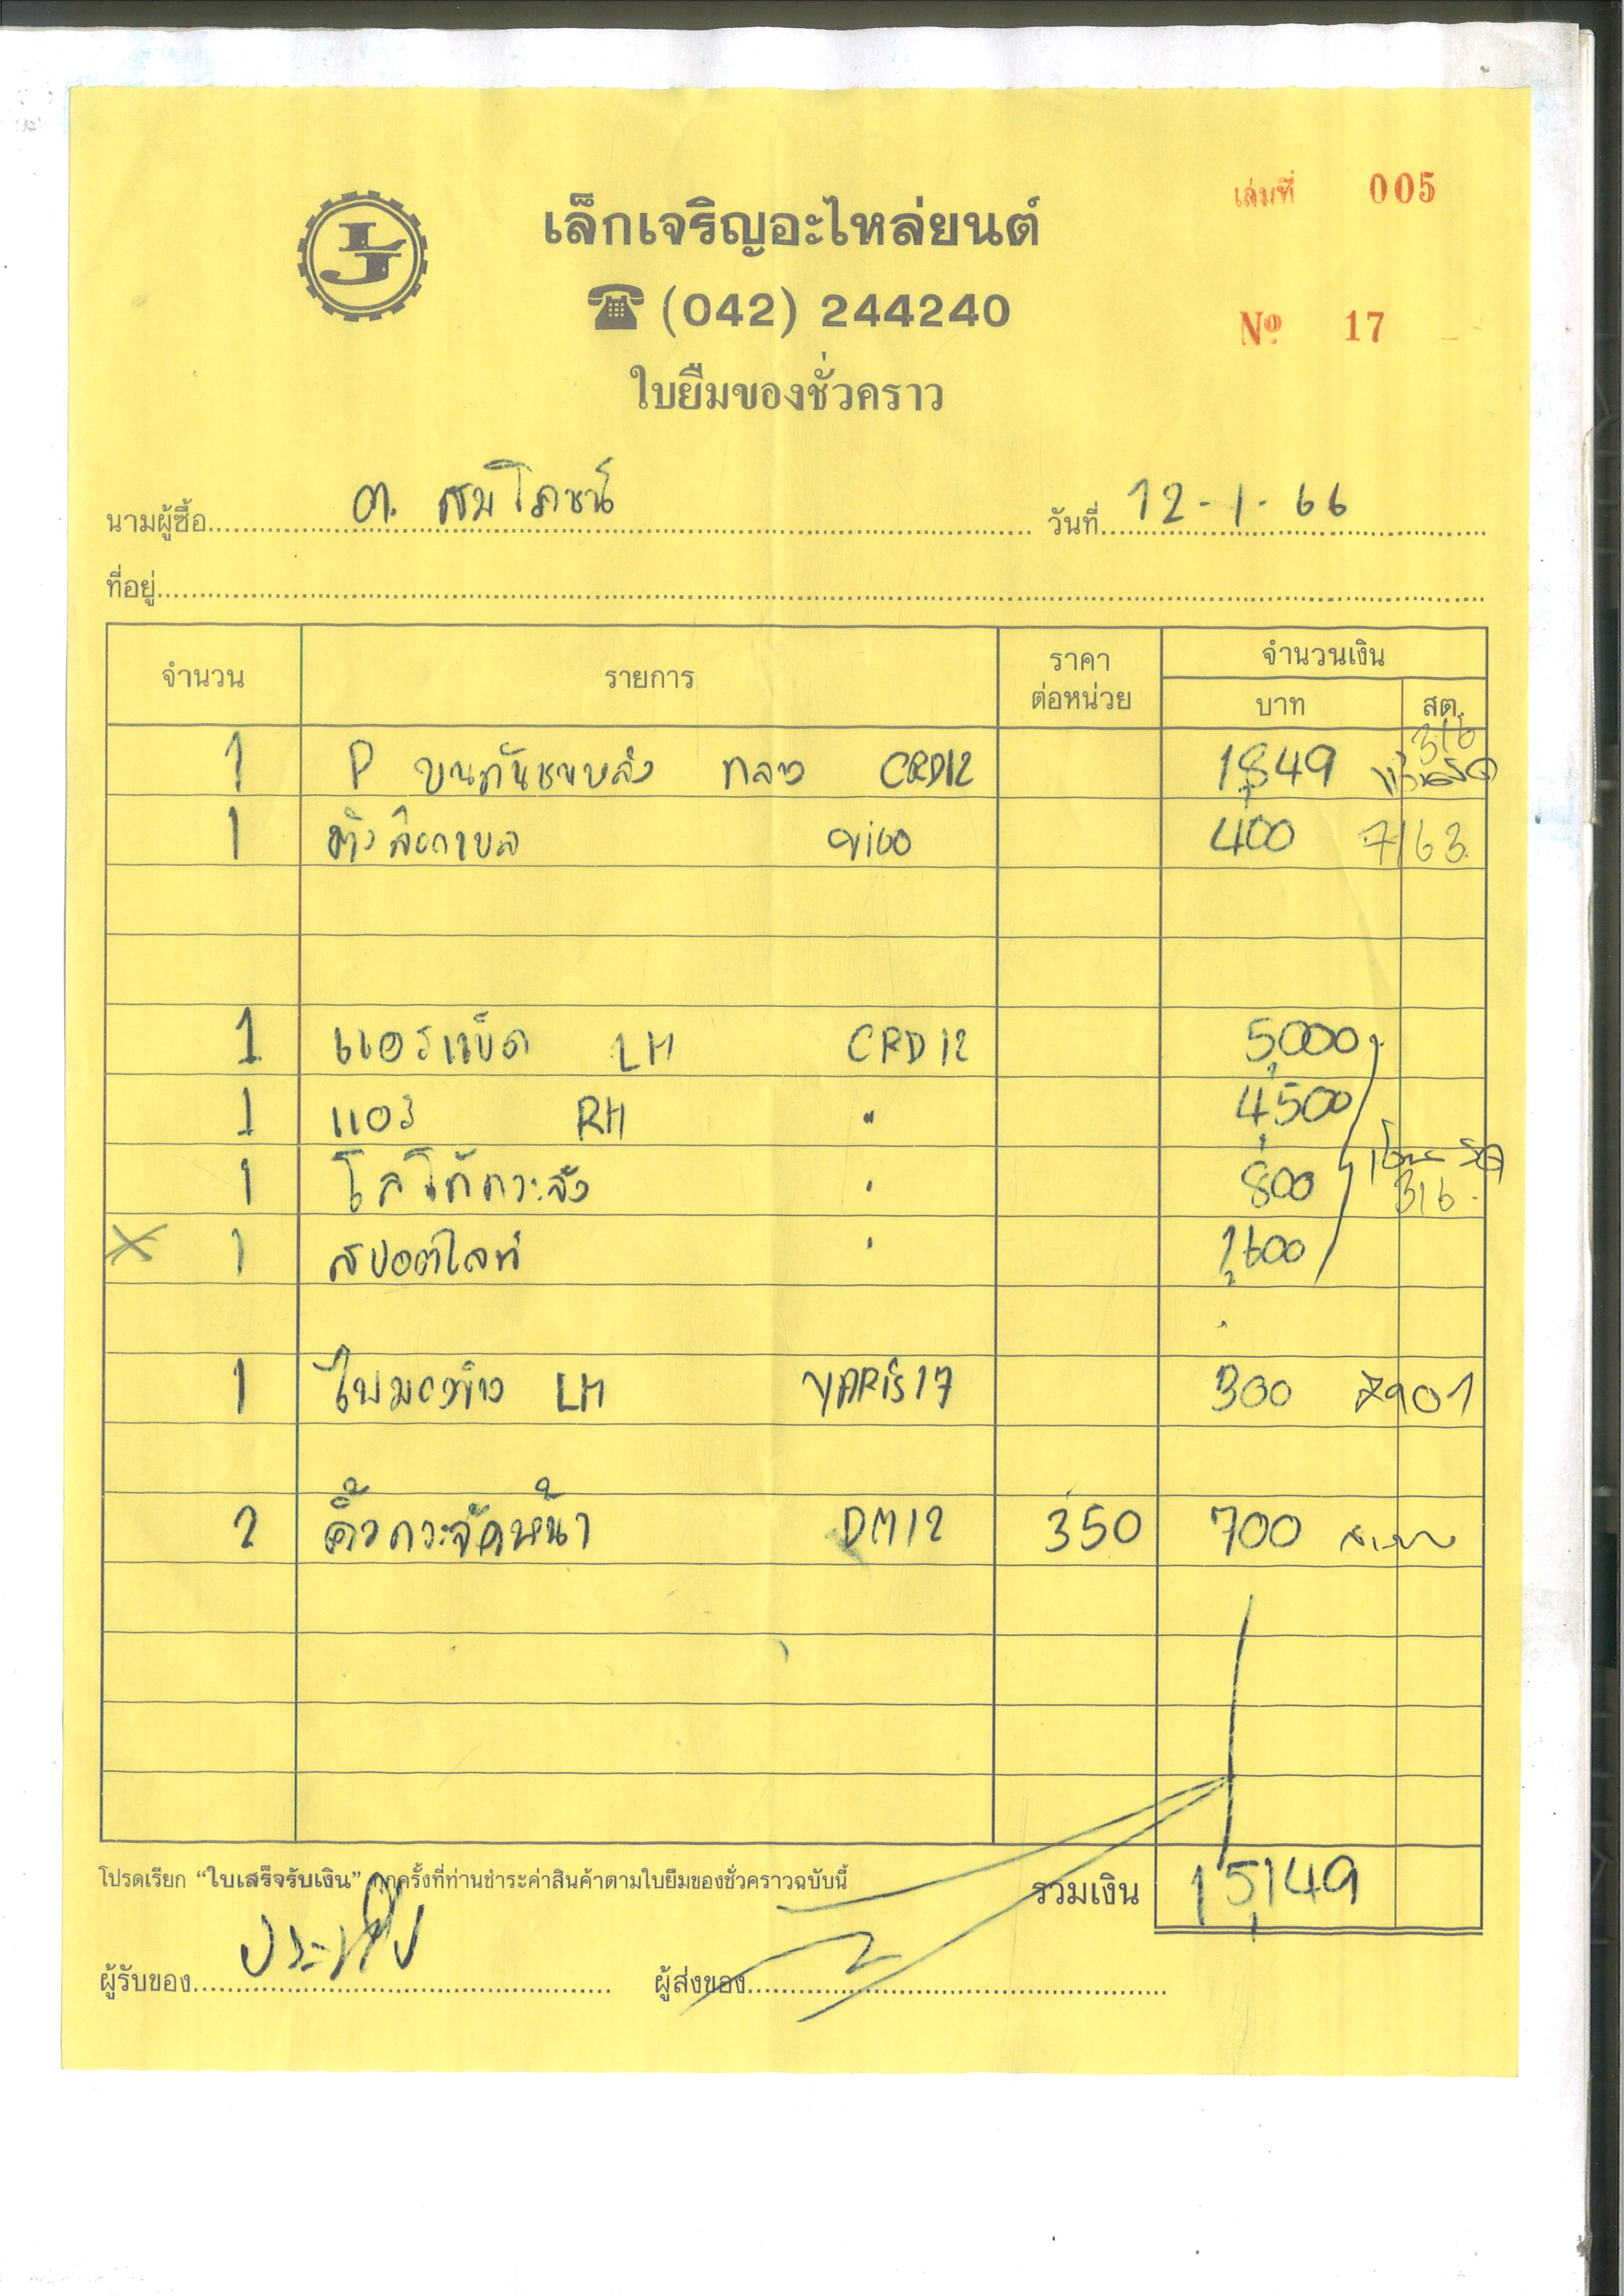 เล่มที่ 005
LJ
เล็กเจริญอะไหล่ยนต์
☎ (042) 244240
Nº 17
ใบยืมของชั่วคราว
นามผู้ซื้อ อ. สมโภชน์ วันที่ 12-1-66
ที่อยู่
จำนวน รายการ ราคาต่อหน่วย จำนวนเงิน
บาท สต.
316
1 P กันชนหลัง กลาง CRD12 1,849
1 400 7163
1 แอร์แบ็ค LH CRD12 5,000
1 แอร์ RH " 4,500
1 โลโก้กระจัง " 800 316
X 1 สปอตไลท์ " 1,600
1 ไฟมองข้าง LH YARiS17 300 7901
2 คิ้วกระจังหน้า DM12 350 700
โปรดเรียก “ใบเสร็จรับเงิน” ทุกครั้งที่ท่านชำระค่าสินค้าตามใบยืมของชั่วคราวฉบับนี้ รวมเงิน 15,149
ผู้รับของ ผู้ส่งของ